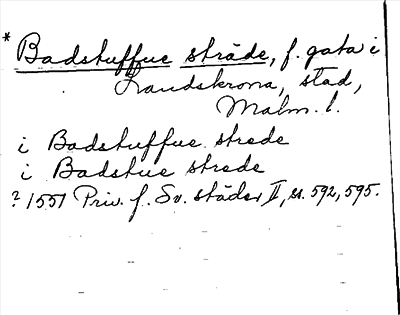 * Badstuffue stræde, f. gata i
Landskrona, stad,
Malm. l.
i Badstuffue strede
i Badstue strede
? 1551 Priv. f. Sv. städer II, s. 592, 595.